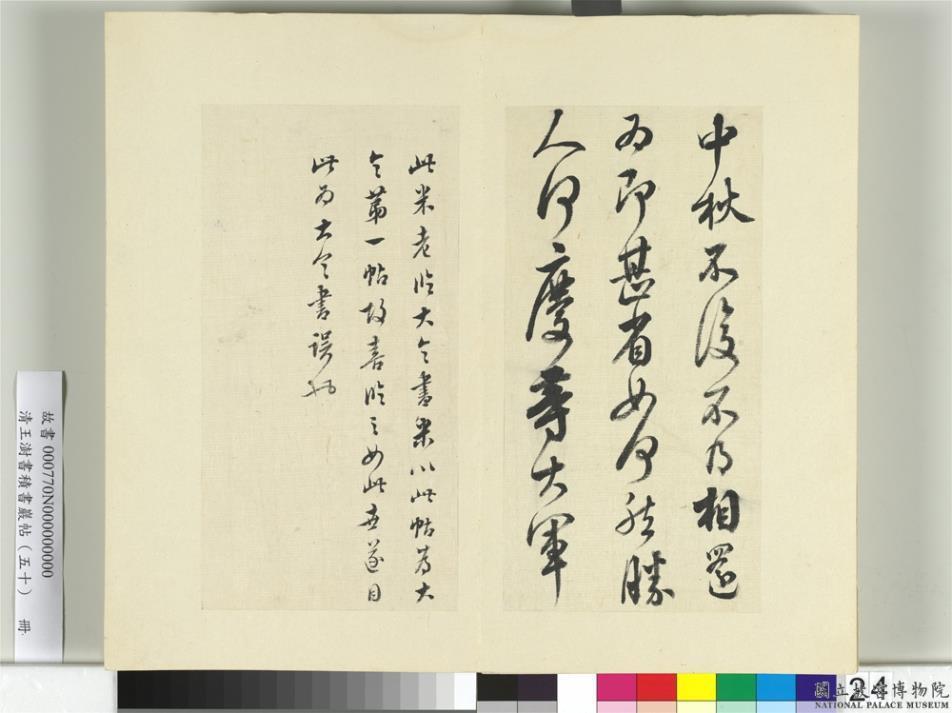 中秋不復不得相還
為即甚省如何然勝
人何慶等大軍
此米老臨大令書米以此帖為大
令第一帖故喜臨之如此世遂目
此為大令書誤也
故書 000770N000000000
清王澍書積書巖帖（五十） 冊
24
國立故宮博物院
NATIONAL PALACE MUSEUM